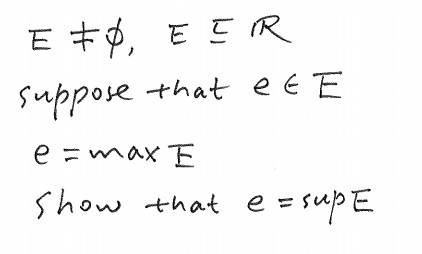 E ≠ ϕ, E ⊆ ℝ
suppose that e ∈ E
e = max E
show that e = sup E